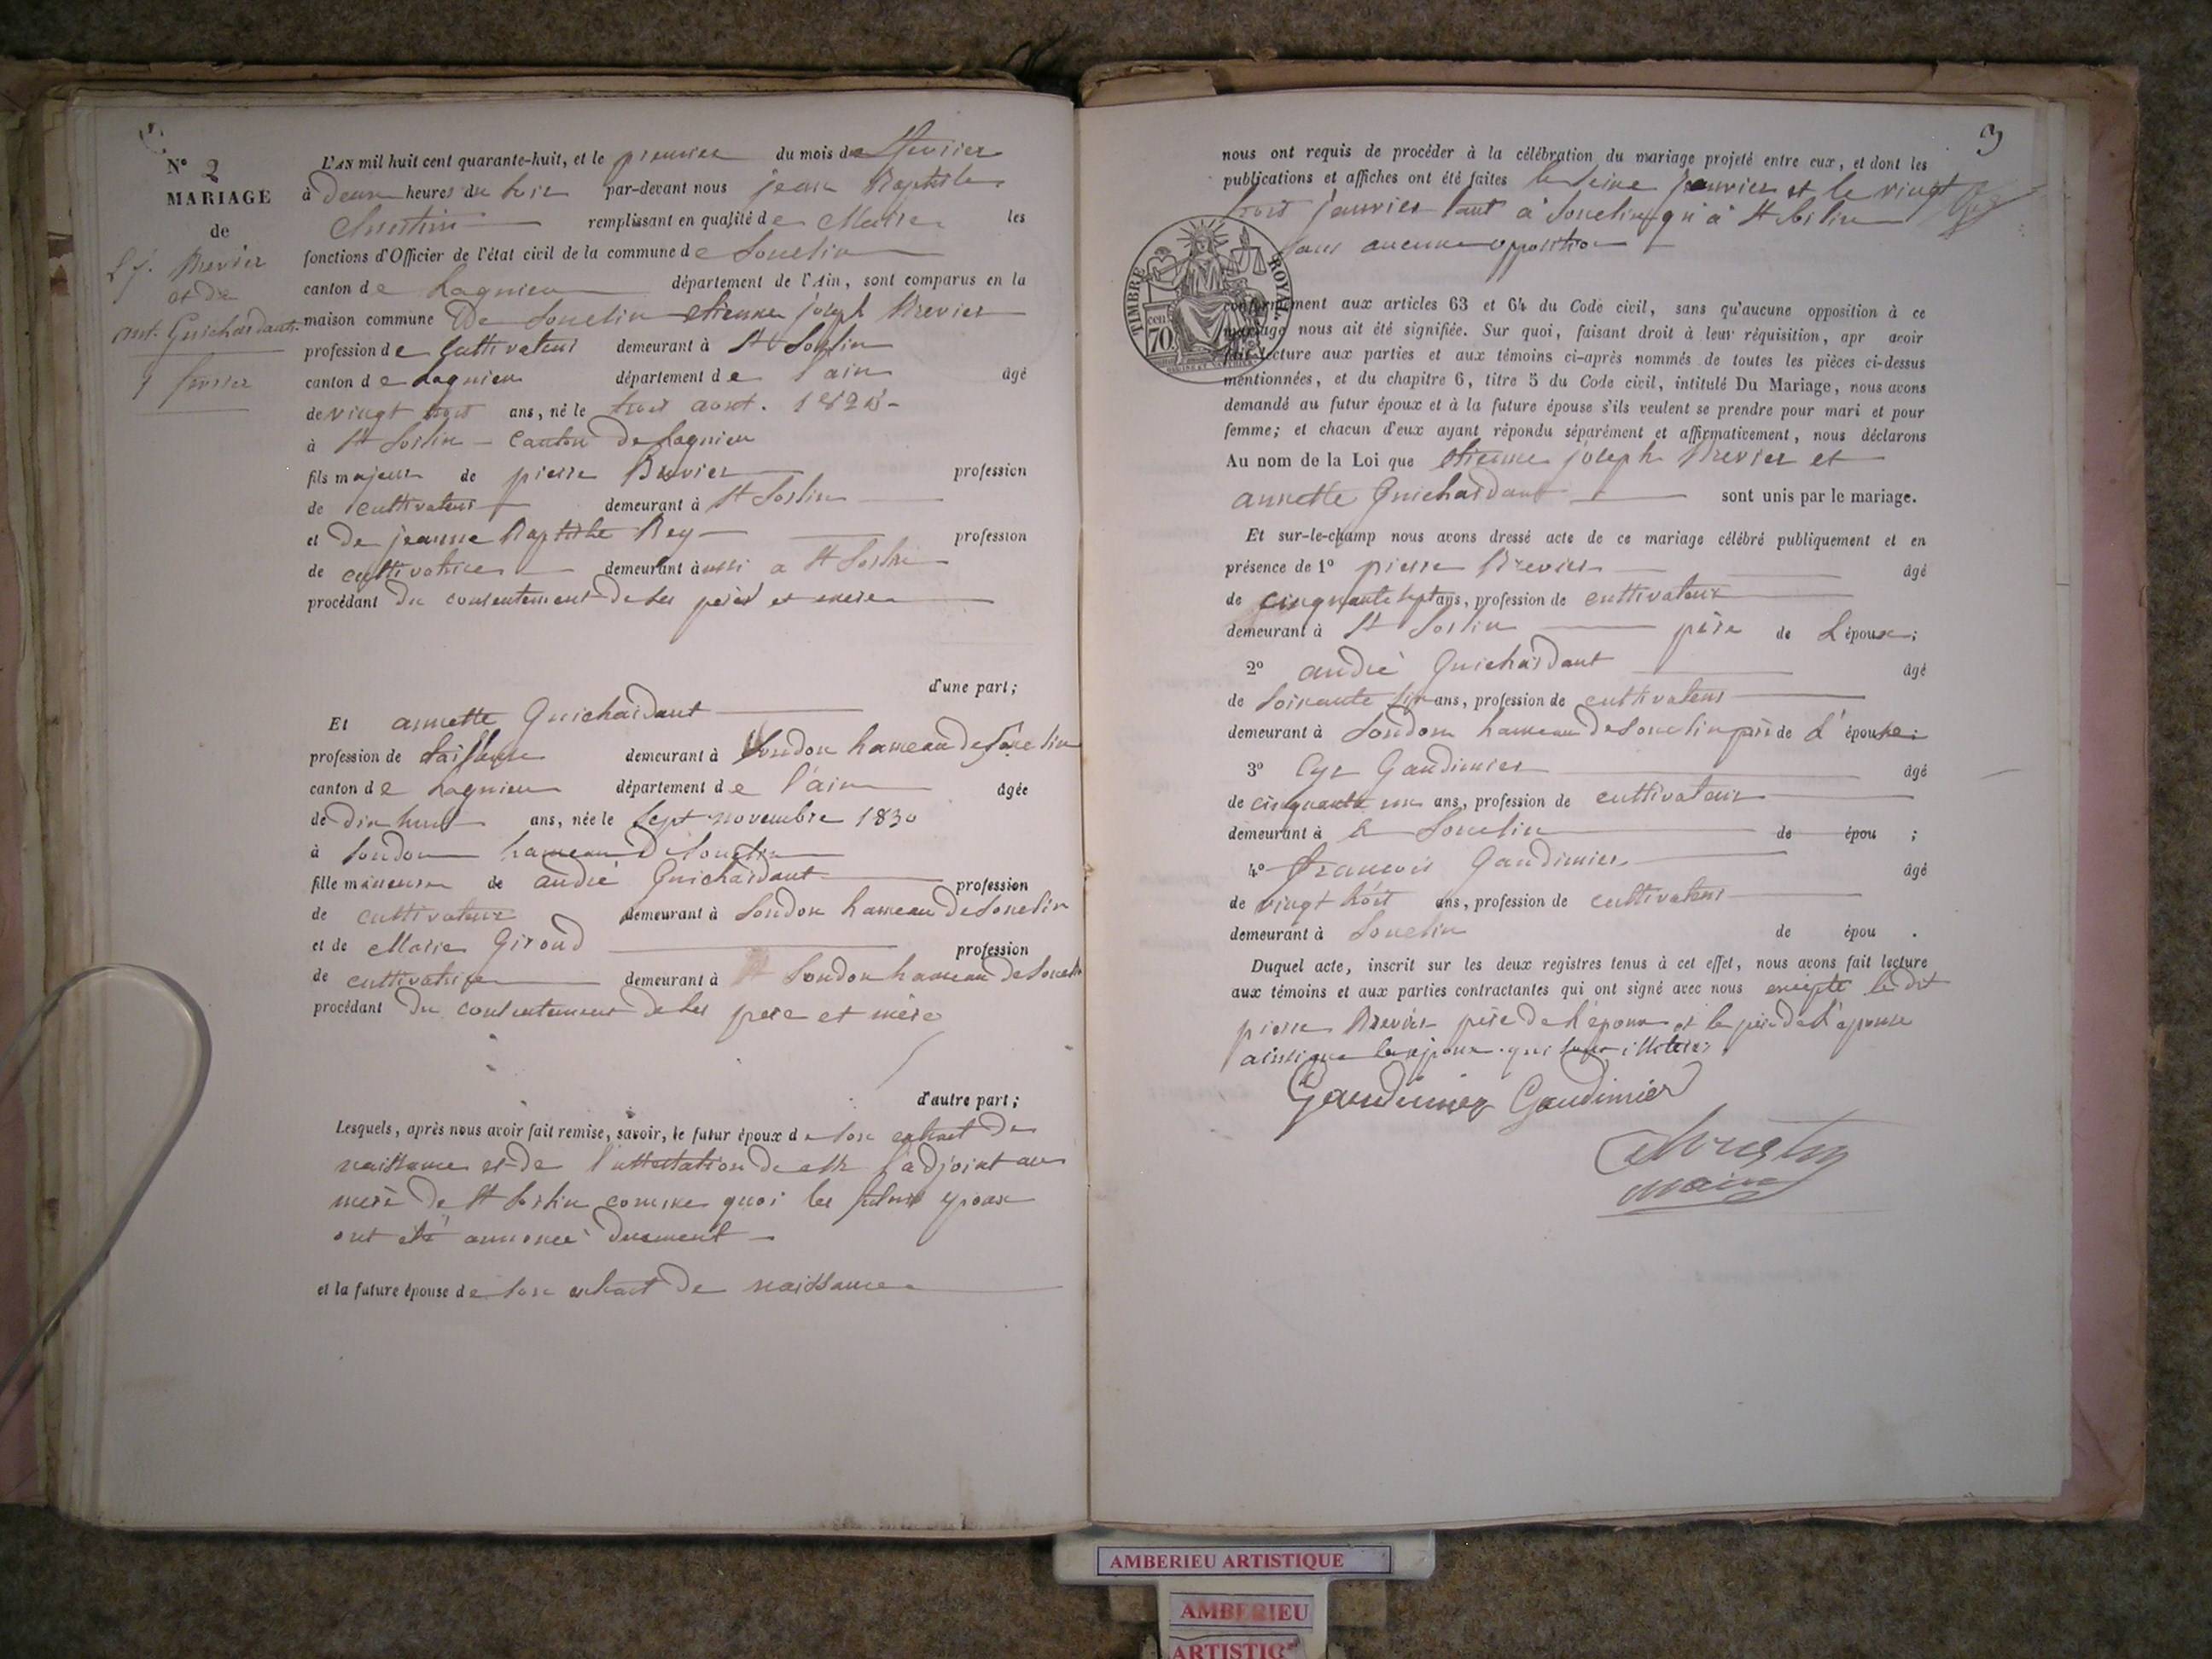 N° 2
MARIAGE
de
Brevier
et de
ant. Guichardant
1 fevrier
L'AN mil huit cent quarante-huit, et le premier du mois de fevrier
à deux heures du soir par-devant nous jean Baptiste
Chrestin remplissant en qualité de Maire les
fonctions d'Officier de l'état civil de la commune de Souclin
canton de Lagnieu département de l'Ain, sont comparus en la
maison commune de Souclin etienne joseph Brevier
profession de Cultivateur demeurant à St Sorlin
canton de Lagnieu département de l'ain âgé
de vingt trois ans, né le trois aout. 182
à St Sorlin - Canton de Lagnieu
fils majeur de pierre Brevier profession
de cultivateur demeurant à St Sorlin
et de jeanne Baptiste Rey profession
de cultivatrice demeurant aussi a St Sorlin
procédant du consentement de ses père et mere
d'une part;
Et annette Guichardant
profession de tailleuse demeurant à Soudon hameau de Souclin
canton de Lagnieu département de l'ain âgée
de dix huit ans, née le Sept novembre 1830
à Soudon hameau de Souclin
fille mineure de andré Guichardant profession
de cultivateur demeurant à Soudon hameau de Souclin
et de Marie Giroud profession
de cultivatrice demeurant à Soudon hameau de Souclin
procédant du consentement de ses pere et mère
d'autre part;
Lesquels, après nous avoir fait remise, savoir, le futur époux de son extrait de
naissance et de l'attestation de l'adjoint au
mere de St Sorlin comme quoi les futurs epoux
ont été annoncé duement
et la future épouse de son extrait de naissance
3
nous ont requis de procéder à la célébration du mariage projeté entre eux, et dont les
publications et affiches ont été faites le seize janvier et le vingt
trois janvier tant à Souclin qu'à St Sorlin
sans aucune opposition
TIMBRE ROYAL
70 cen
conformément aux articles 63 et 64 du Code civil, sans qu'aucune opposition à ce
mariage nous ait été signifiée. Sur quoi, faisant droit à leur réquisition, apr avoir
fait lecture aux parties et aux témoins ci-après nommés de toutes les pièces ci-dessus
mentionnées, et du chapitre 6, titre 5 du Code civil, intitulé Du Mariage, nous avons
demandé au futur époux et à la future épouse s'ils veulent se prendre pour mari et pour
femme; et chacun d'eux ayant répondu séparément et affirmativement, nous déclarons
Au nom de la Loi que etienne joseph Brevier et
annette Guichardant sont unis par le mariage.
Et sur-le-champ nous avons dressé acte de ce mariage célébré publiquement et en
présence de 1° pierre Brevier âgé
de cinquante sept ans, profession de cultivateur
demeurant à St Sorlin père de L'époux;
2° andré Guichardant âgé
de soixante six ans, profession de cultivateur
demeurant à Soudon hameau de Souclin père de L'épouse;
3° Cyr Gaudimier âgé
de cinquante un ans, profession de cultivateur
demeurant à Souclin de épou ;
4° francois Gaudimier âgé
de vingt trois ans, profession de cultivateur
demeurant à Souclin de épou .
Duquel acte, inscrit sur les deux registres tenus à cet effet, nous avons fait lecture
aux témoins et aux parties contractantes qui ont signé avec nous excepté le dit
pierre Brevier père de l'époux et le père de l'epouse
ainsi que les epoux qui sont illetérés
Gaudimier Gaudimier
Chrestin
maire
AMBERIEU ARTISTIQUE
AMBERIEU
ARTISTIQ